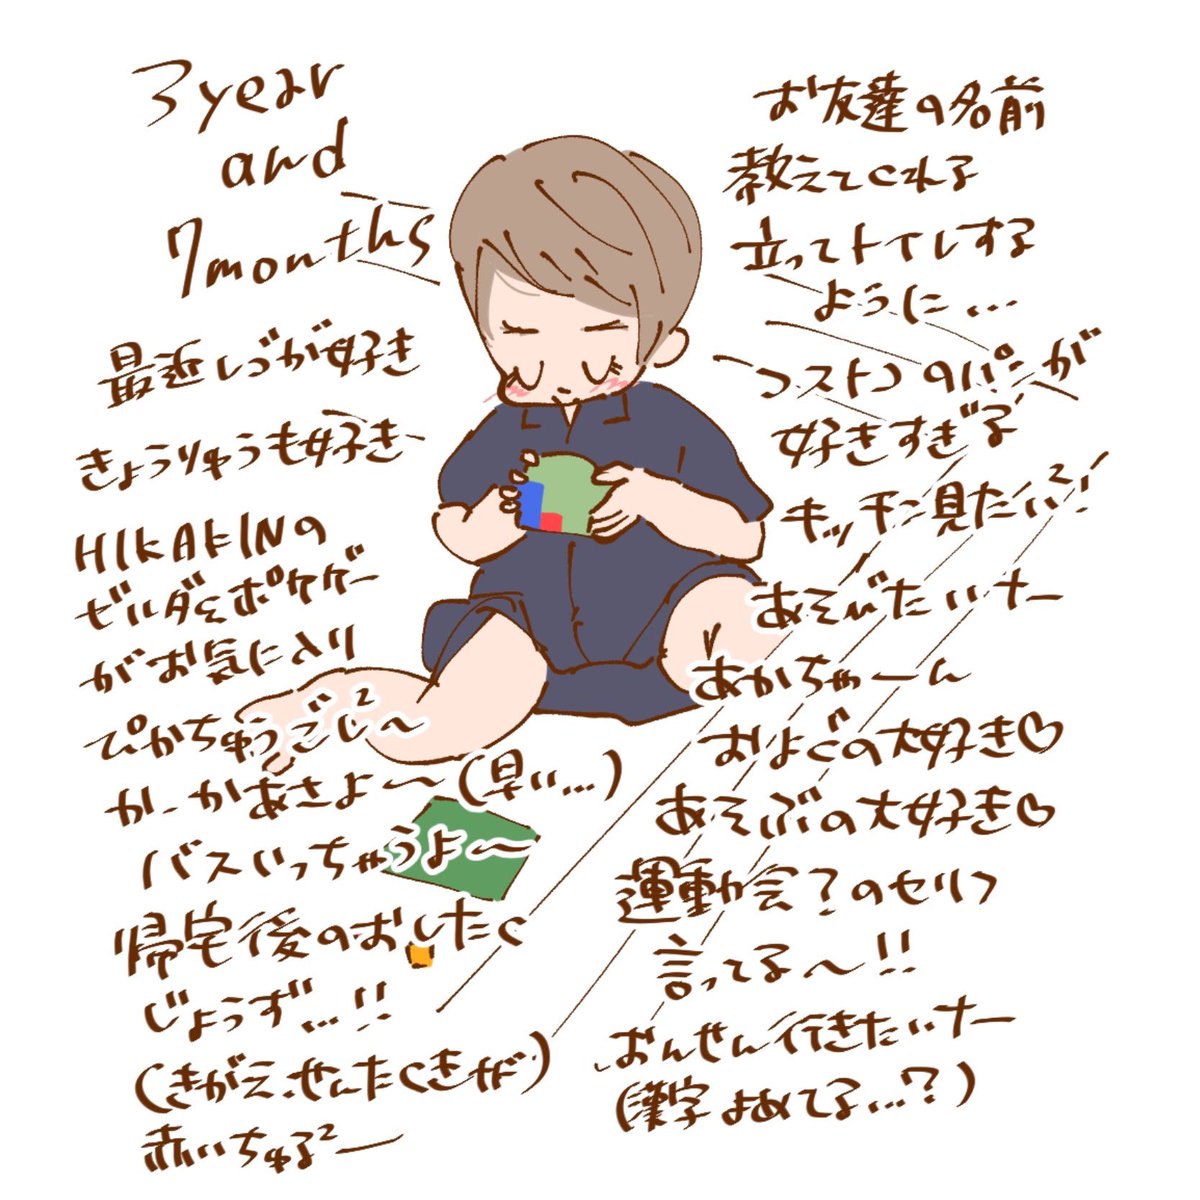 3 year
and
7 months
最近レゴが好き
きょうりゅうも好きー
HIKAKINの
ゼルダとポケゲー
がお気に入り
ぴかちゅうごご〜
かーかあさよ〜(早い…)
バスいっちゃうよ〜
帰宅後のおしたく
じょうず…!!
(きがえ、せんたくきetc)
赤いちゅる2ー
お友達の名前
教えてくれる
立ってトイレする
ように…
コストコのパンが
好きすぎる
キッチン見たい2!
あそびたいなー
あかちゃーん
およぐの大好き♡
あそぶの大好き♡
運動会?のセリフ
言ってる〜!!
おんせん行きたいなー
(漢字よめてる…?)